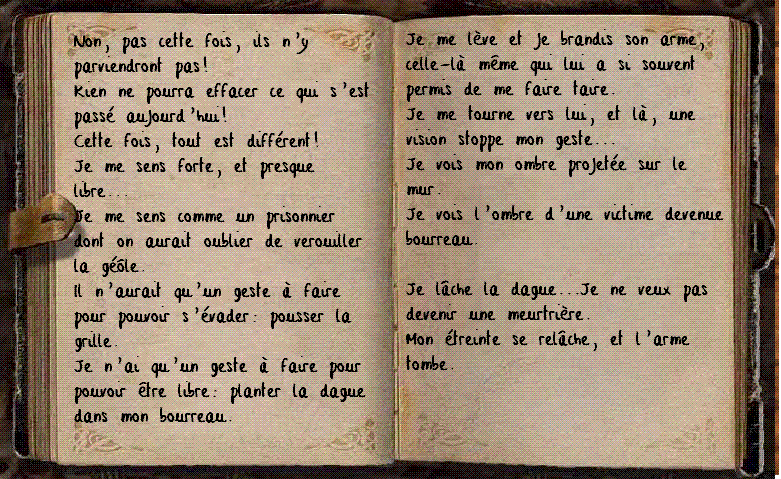 Non, pas cette fois, ils n'y
parviendront pas!
Rien ne pourra effacer ce qui s'est
passé aujourd'hui!
Cette fois, tout est différent!
Je me sens forte, et presque
libre...
Je me sens comme un prisonnier
dont on aurait oublier de verouiller
la géôle.
Il n'aurait qu'un geste à faire
pour pouvoir s'évader: pousser la
grille.
Je n'ai qu'un geste à faire pour
pouvoir être libre: planter la dague
dans mon bourreau.
Je me lève et je brandis son arme,
celle-là même qui lui a si souvent
permis de me faire taire.
Je me tourne vers lui, et là, une
vision stoppe mon geste...
Je vois mon ombre projetée sur le
mur.
Je vois l'ombre d'une victime devenue
bourreau.
Je lâche la dague...Je ne veux pas
devenir une meurtrière.
Mon étreinte se relâche, et l'arme
tombe.